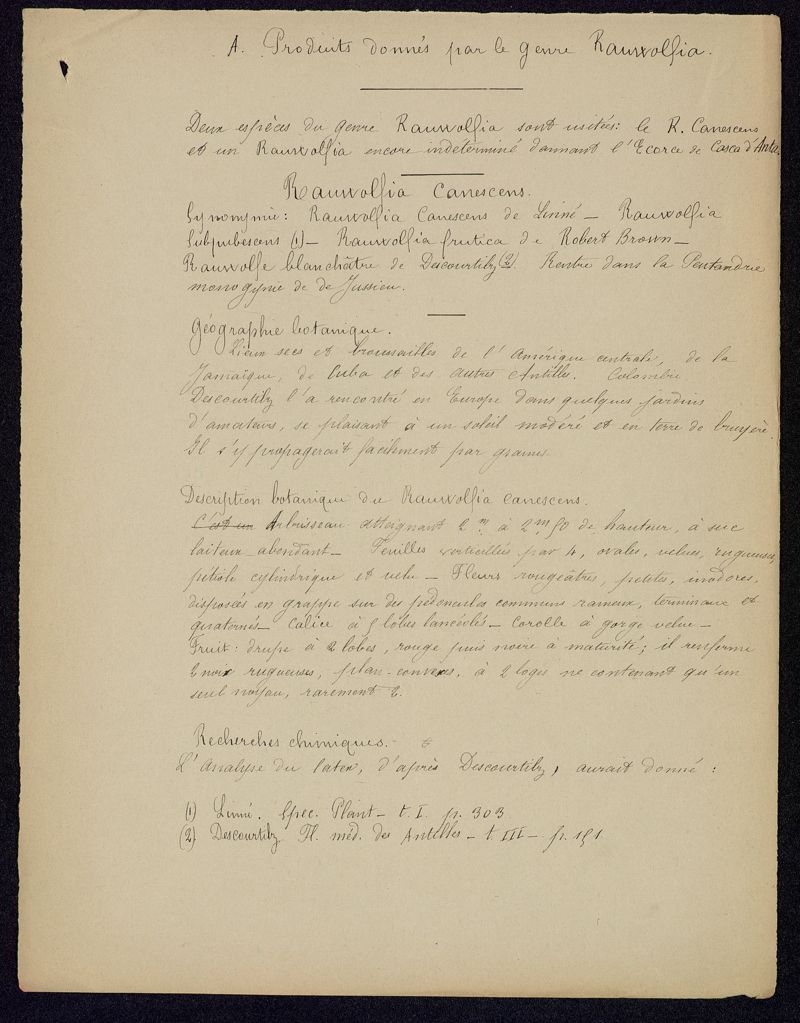 A. Produits donnés par le genre Rauwolfia.
Deux espèces du genre Rauwolfia sont usitées: le R. Canescens
et un Rauwolfia encore indeterminé donnant l'Ecorce de Casca d'Anta.
Rauwolfia Canescens.
Synonymie: Rauwolfia Canescens de Linné — Rauwolfia
Subpubescens (1) — Rauwolfia frutica de Robert Brown —
Rauwolfe blanchâtre de Descourtilz (2) Rentre dans la Pentandrie
monogynie de de Jussieu.
Géographie botanique.
Lieux secs et broussailles de l'Amérique centrale, de la
Jamaïque, de Cuba et des autres Antilles. Colombie
Descourtilz l'a rencontré en Europe dans quelques jardins
d'amateurs, se plaisant à un soleil modéré et en terre de bruyère.
Il s'y propagerait facilement par graines
Description botanique du Rauwolfia canescens.
C'est un Arbrisseau atteignant 2m à 2m,50 de hauteur, à suc
laiteux abondant — Feuilles verticillées par 4, ovales, velues, rugueuses,
pétiole cylindrique et velu — Fleurs rougeâtres, petites, inodores,
disposées en grappe sur des pédoncules communs rameux, terminaux et
quaternés — Calice à 5 lobes lancéolés — Corolle à gorge velue —
Fruit: drupe à 2 lobes, rouge puis noire à maturité; il renferme
2 noix rugueuses, plan-convexes, à 2 loges ne contenant qu'un
seul noyau, rarement 2.
Recherches chimiques. —
L'Analyse du latex, d'après Descourtilz, aurait donné:
(1) Linné. Spec. Plant — t. I. p. 303
(2) Descourtilz Fl. méd. des Antilles — t. III — p. 151